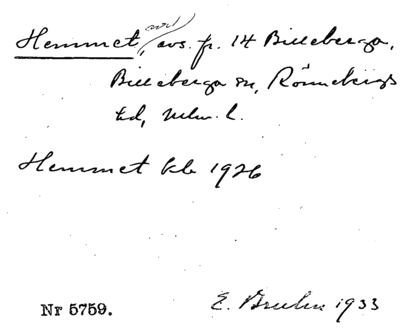 Hemmet, avs. fr. 14 Billeberga,
Billeberga sn, Rönnebergs
hd, Mlm. l.
Hemmet kb 1926
Nr 5759.
E. Bruhn 1933